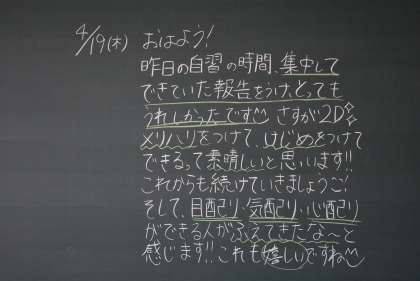 4/19(木) おはよう!
昨日の自習の時間、集中して
できていた報告をうけ、とっても
うれしかったです さすが2D
メリハリをつけて、けじめをつけて
できるって素晴しいと思います!!
これからも続けていきましょうこ!
そして、目配り・気配り・心配り
ができる人がふえてきたな〜と
感じます!! これも嬉しいですね